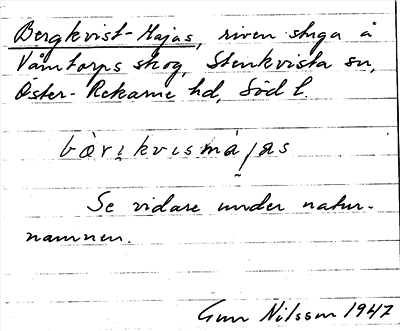 Bergkvist-Majas, riven stuga å
Våmtorps skog, Stenkvista sn,
Öster-Rekarne hd, Södl.
bær̥kvismàjas
Se vidare under natur-
namnen.
Gun Nilsson 1947